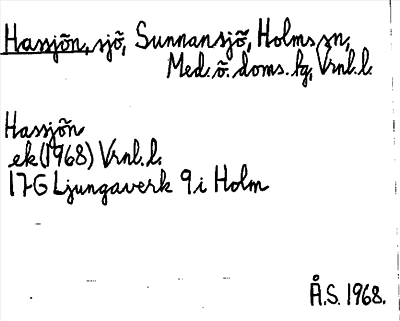 Hassjön, sjö, Sunnansjö, Holms sn,
Med. ö. doms. tg, Vrnl. l.
Hassjön
ek (1968) Vrnl. l.
17G Ljungaverk 9 i Holm
Å.S. 1968.